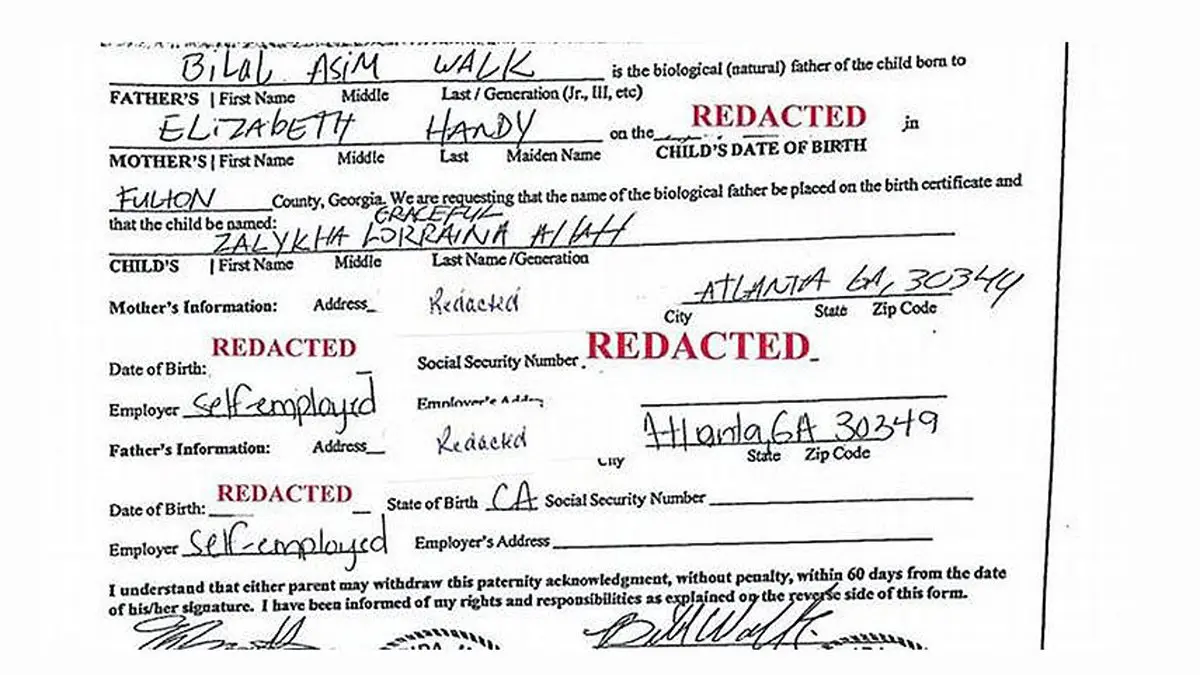 BiLaL ASiM WALK is the biological (natural) father of the child born to
FATHER'S | First Name Middle Last / Generation (Jr., III, etc)
ELiZAbETH HANDY on the REDACTED in
MOTHER'S | First Name Middle Last Maiden Name CHILD'S DATE OF BIRTH
FULTON County, Georgia. We are requesting that the name of the biological father be placed on the birth certificate and
that the child be named: GRACEFUL
ZALYKHA LORRAINA AllAH
CHILD'S | First Name Middle Last Name /Generation
Mother's Information: Address Redacted ATLANTA GA, 30349
City State Zip Code
Date of Birth: REDACTED Social Security Number REDACTED
Employer self-employed Employer's
Father's Information: Address Redacted Atlanta, GA 30349
City State Zip Code
Date of Birth: REDACTED State of Birth CA Social Security Number
Employer self-employed Employer's Address
I understand that either parent may withdraw this paternity acknowledgment, without penalty, within 60 days from the date
of his/her signature. I have been informed of my rights and responsibilities as explained on the reverse side of this form.
Bilal Walk